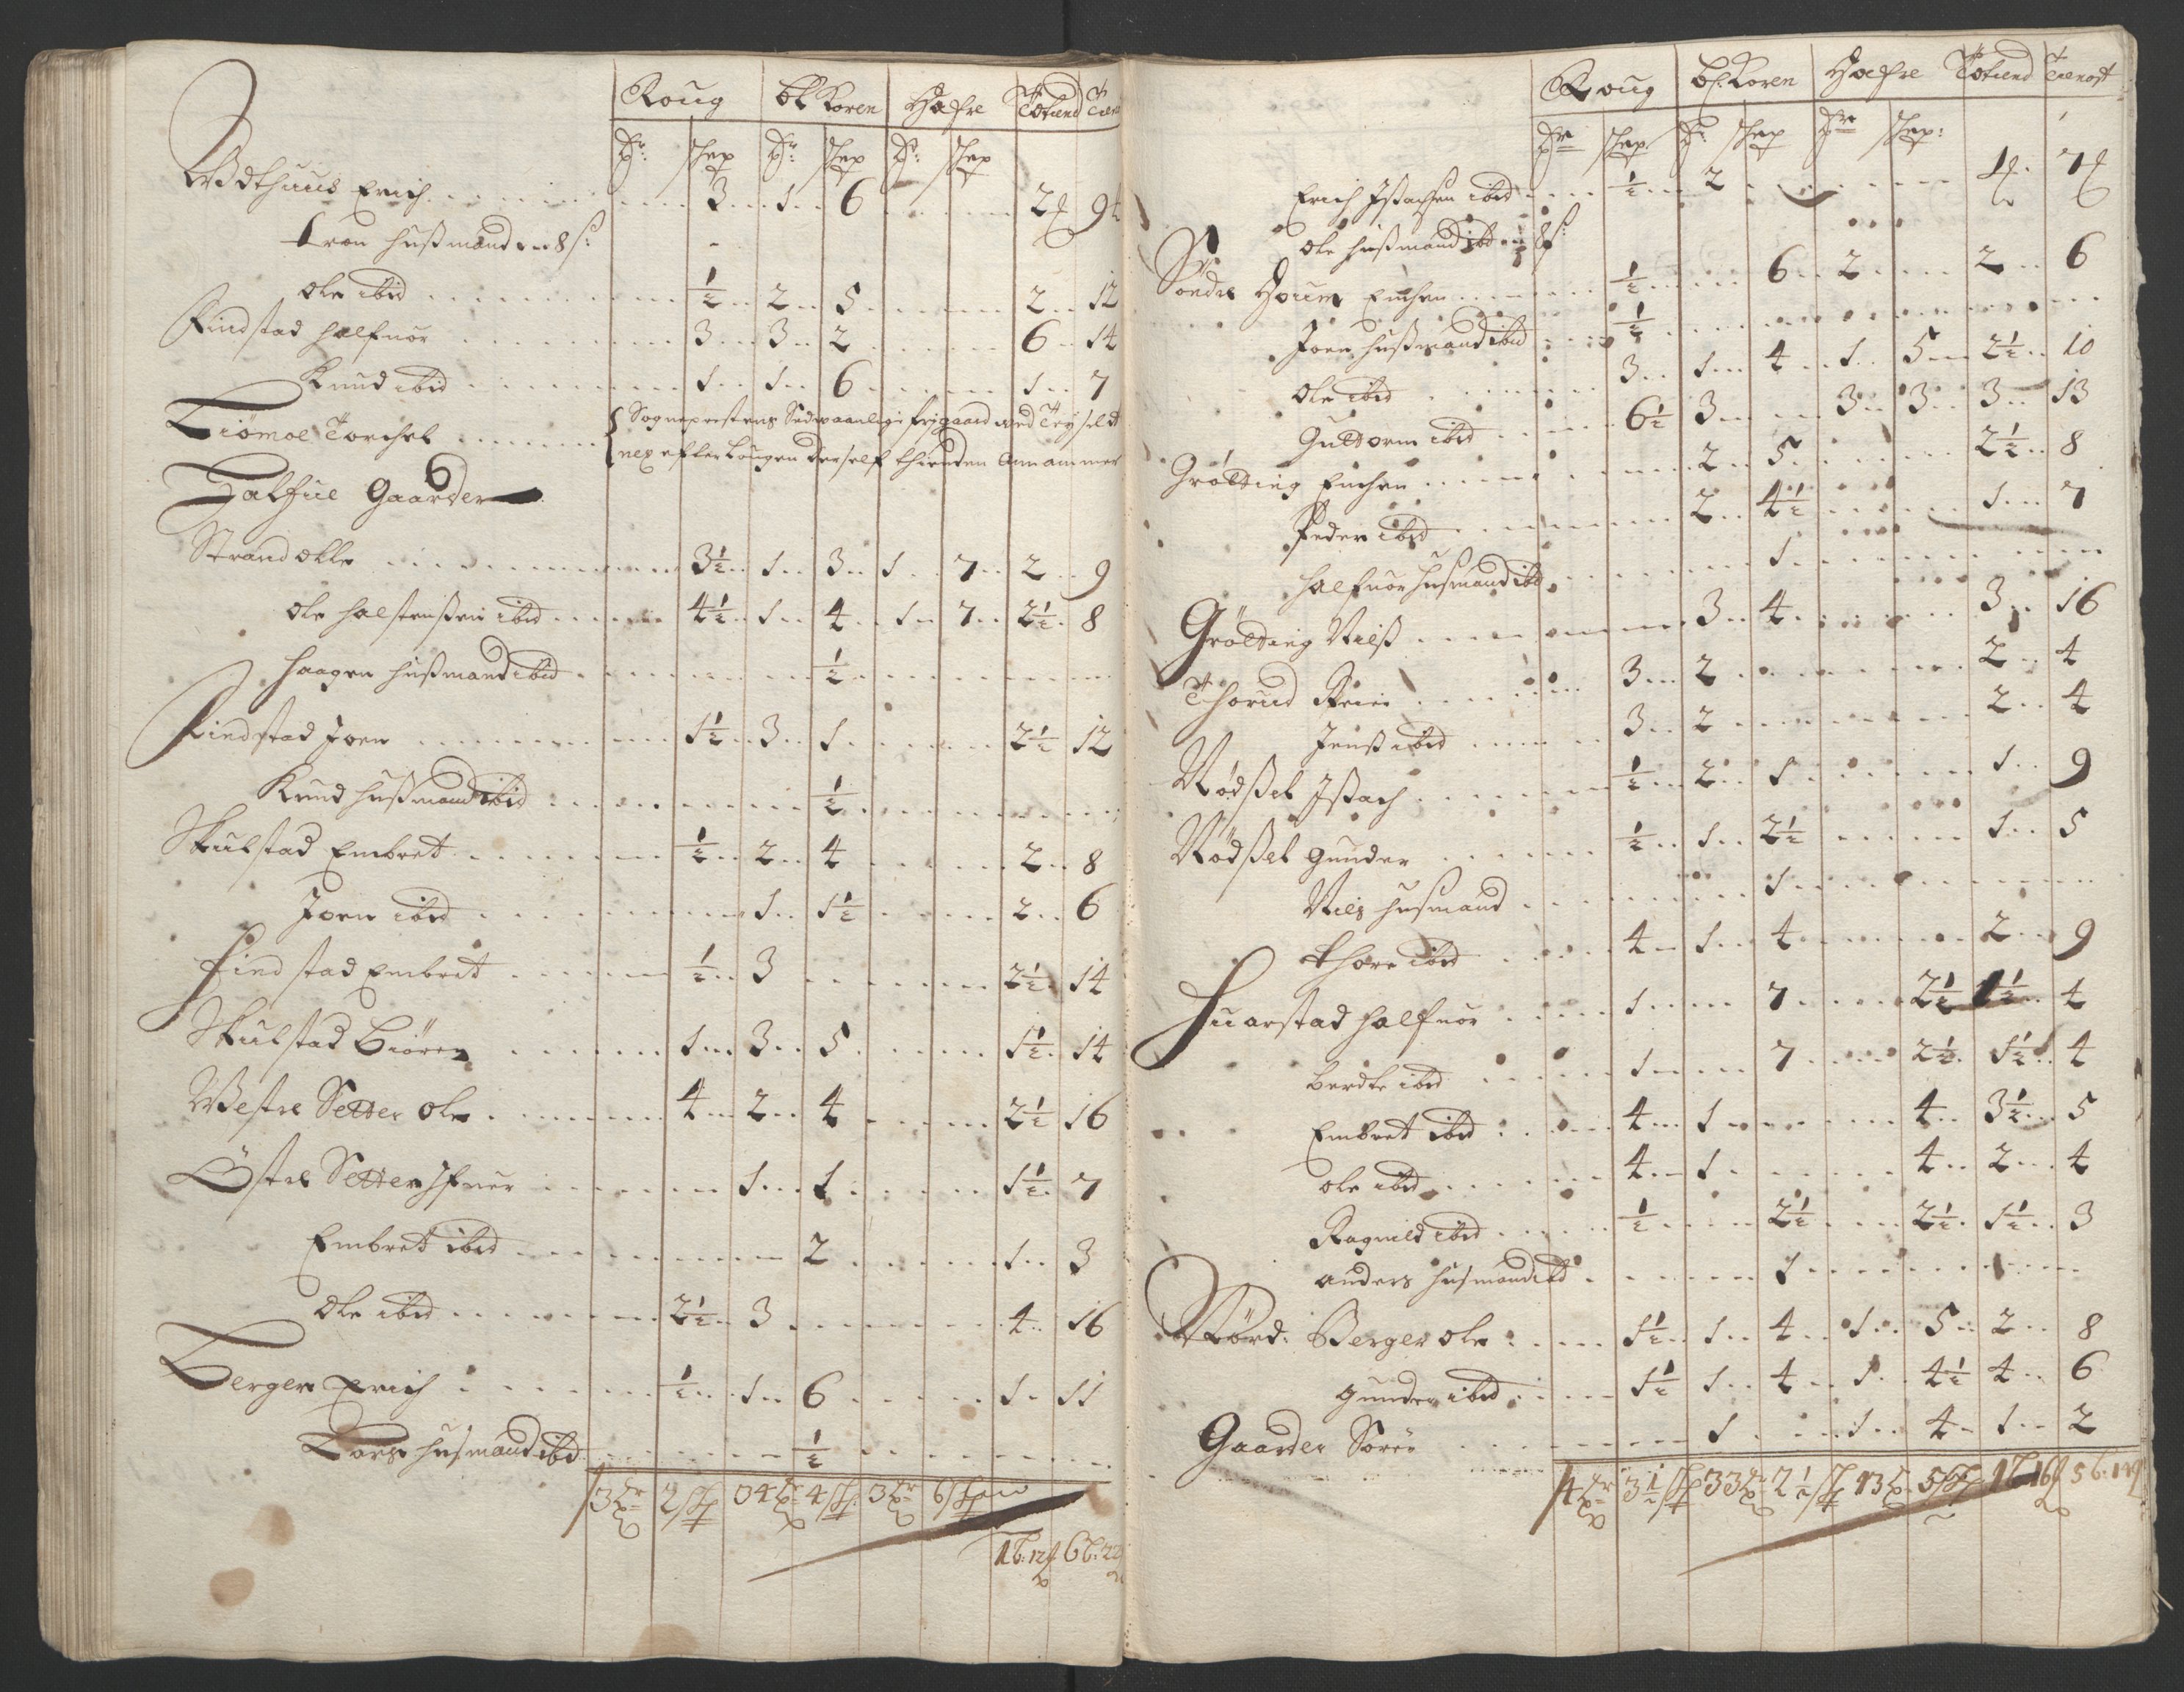 Roug bl Koren Hafre Tötiend Tiene
Tr: skep Tr: skep Tr: skep
Wdthuus Erich 3 1 6 2 9
Tron husmand 8 s:
Ole ibid ½ 2 5 2 12
Findstad Halfuor 3 3 2 6 14
Knud ibid 1 1 6 1 7
Tiømoe Torchel Sognepræstens Sædvaanlige frigaard
nep efter Lougen der self thienden annammer
Halfue Gaarder
Strand Olle 3½ 1 3 1 7 2 9
Ole Halstenßen ibid 4½ 1 4 1 7 2½ 8
Haagen husmand ibid ½
Findstad Joen 1½ 3 1 2½ 12
Knud husmand ibid ½
Skulstad Embret ½ 2 4 2 8
Joen ibid 1 1½ 2 6
Findstad Embret ½ 3 2½ 14
Skulstad Biøren 1 3 5 1½ 14
Westre Setter Ole 4 2 4 2½ 16
Østre Setter Ifuer 1 1 1½ 7
Embret ibid 2 1 3
Ole ibid 2½ 3 4 16
Berger Erich ½ 1 6 1 11
Lars husmand ibd ½
3 Tr 2 skp 34 Tr 4 skp 3 Tr 6 skp
1 b: 12 6 b: 22
Roug bl: Koren Hafre Tötiend Tienost
Tr skep Tr: skep Tr skep:
Erich Ißachsen ibid ½ 2 1 7
Ole husmand ibd 8 s:
Søndre Houm Enchen ½ 6 2 2 6
Joen husmand ibid ½
Ole ibid 3 1 4 1 5 2½ 10
Guttorm ibid 6½ 3 3 3 3 13
Grøtting Enchen 2 5 2½ 8
Peder ibid 2 4½ 1 7
Halfuor husmand ibd 1
Grøtting Nilß 3 4 3 16
Thorud Reier 3 2 2 4
Jenß ibid 3 2 2 4
Nødßel Ißach ½ 2 1 1 9
Nødßel Gunder ½ 1 2½ 1 5
Nilß husmand 1
Thore ibid 4 1 4 2 9
Huarstad Halfuor 1 7 2½ 1½ 4
Berdte ibid 1 7 2½ 1½ 4
Embret ibid 4 1 4 3½ 5
Ole ibid 4 1 4 2 4
Ragnild ibid ½ 2½ 2½ 1½ 3
Anders husmand ibd 1
Nørd: Berger Ole 1½ 1 4 1 5 2 8
Gunder ibid 1½ 1 4 1 4½ 4 6
Gaarder Sören 1 1 4 1 2
4 Tr 3½ skp 33 Tr 2½ skp 13 Tr 5 skp 1 b 16 5 b: 14